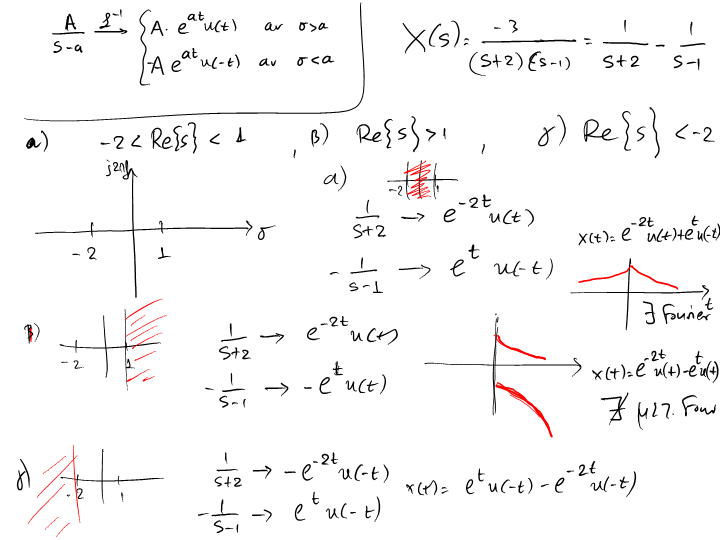 A/(s-a) —ℒ⁻¹→ { A·e^{at}u(t) αν σ>a
-A e^{at}u(-t) αν σ<a
X(s) = -3/((s+2)(s-1)) = 1/(s+2) - 1/(s-1)
α) -2 < Re{s} < 1 , β) Re{s} > 1 , γ) Re{s} < -2
j2πf
σ
-2 1
α)
-2 1
1/(s+2) → e^{-2t}u(t)
-1/(s-1) → e^{t}u(-t)
x(t) = e^{-2t}u(t)+e^{t}u(-t)
t
∃ Fourier
β)
-2 1
1/(s+2) → e^{-2t}u(t)
-1/(s-1) → -e^{t}u(t)
x(t) = e^{-2t}u(t)-e^{t}u(t)
∄ μετ. Four
γ)
-2 1
1/(s+2) → -e^{-2t}u(-t)
-1/(s-1) → e^{t}u(-t)
x(t) = e^{t}u(-t) - e^{-2t}u(-t)